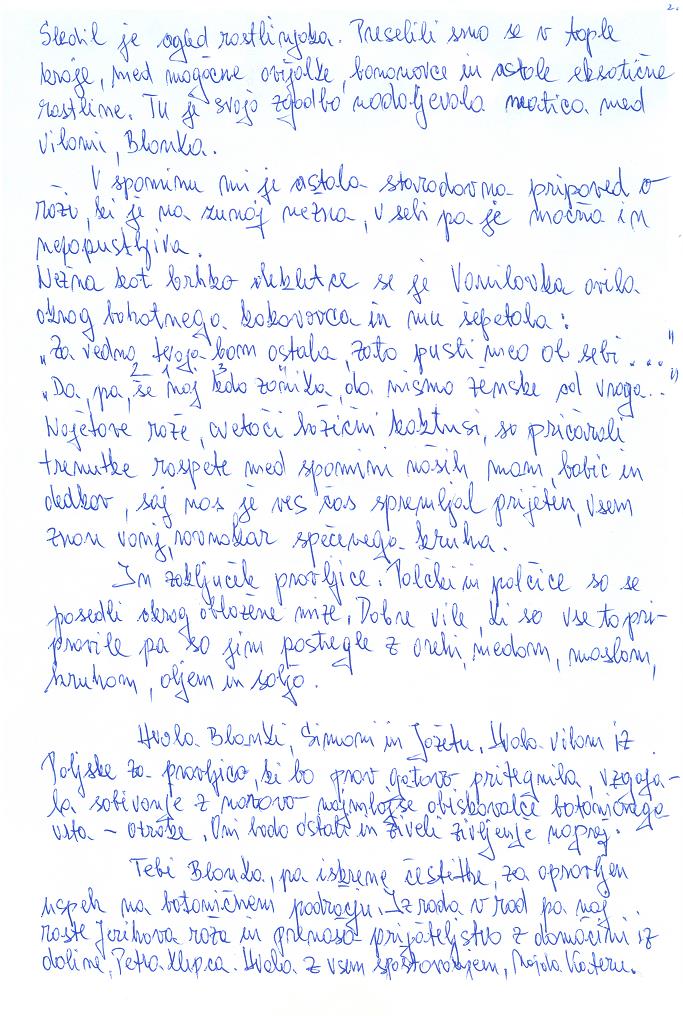 2.
Sledil je ogled rastlinjaka. Preselili smo se v tople
kraje, med mogočne ovijalke, bananovce in ostale eksotične
rastline. Tu je svojo zgodbo nadaljevala matica med
vilami, Blanka.
V spominu mi je ostala starodavna pripoved o
roži, ki je na zunaj nežna, v sebi pa je močna in
nepopustljiva.
Nežna kot brhko dekletce se je Vanilovka ovila
okrog bohotnega kakavovca in mu šepetala:
"Za vedno tvoja bom ostala, zato pusti me ob sebi...."
"Da, pa, še naj kdo zamika, da nismo ženske od vraga.."
2 1 3
cvetoči božični kaktusi, so pričarali
trenutke razpete med spomini naših mam, babic in
dedkov, saj nas je ves čas spremljal prijeten, vsem
znan vonj, ravnokar spečenega kruha.
In zaključek pravljice. Palčki in palčice so se
posedli okrog obložene mize. Dobre vile, ki so vse to pri-
pravile pa so jim postregle z orehi, medom, maslom,
kruhom, oljem in soljo.
Hvala Blanki, Simoni in Jožetu. Hvala vilam iz
Poljske za pravljico, ki bo prav gotovo pritegnila, vzgaja-
la sobivanje z naravo najmlajše obiskovalce botaničnega
vrta - otroke. Oni bodo ostali in živeli življenje naprej.
Tebi Blanka, pa iskrene čestitke, za opravljen
uspeh na botaničnem področju. Iz roda v rod pa naj
raste Jerihova roža in prenaša prijateljstvo z domačimi iz
doline, Petra Klepca. Hvala z vsem spoštovanjem, Majda